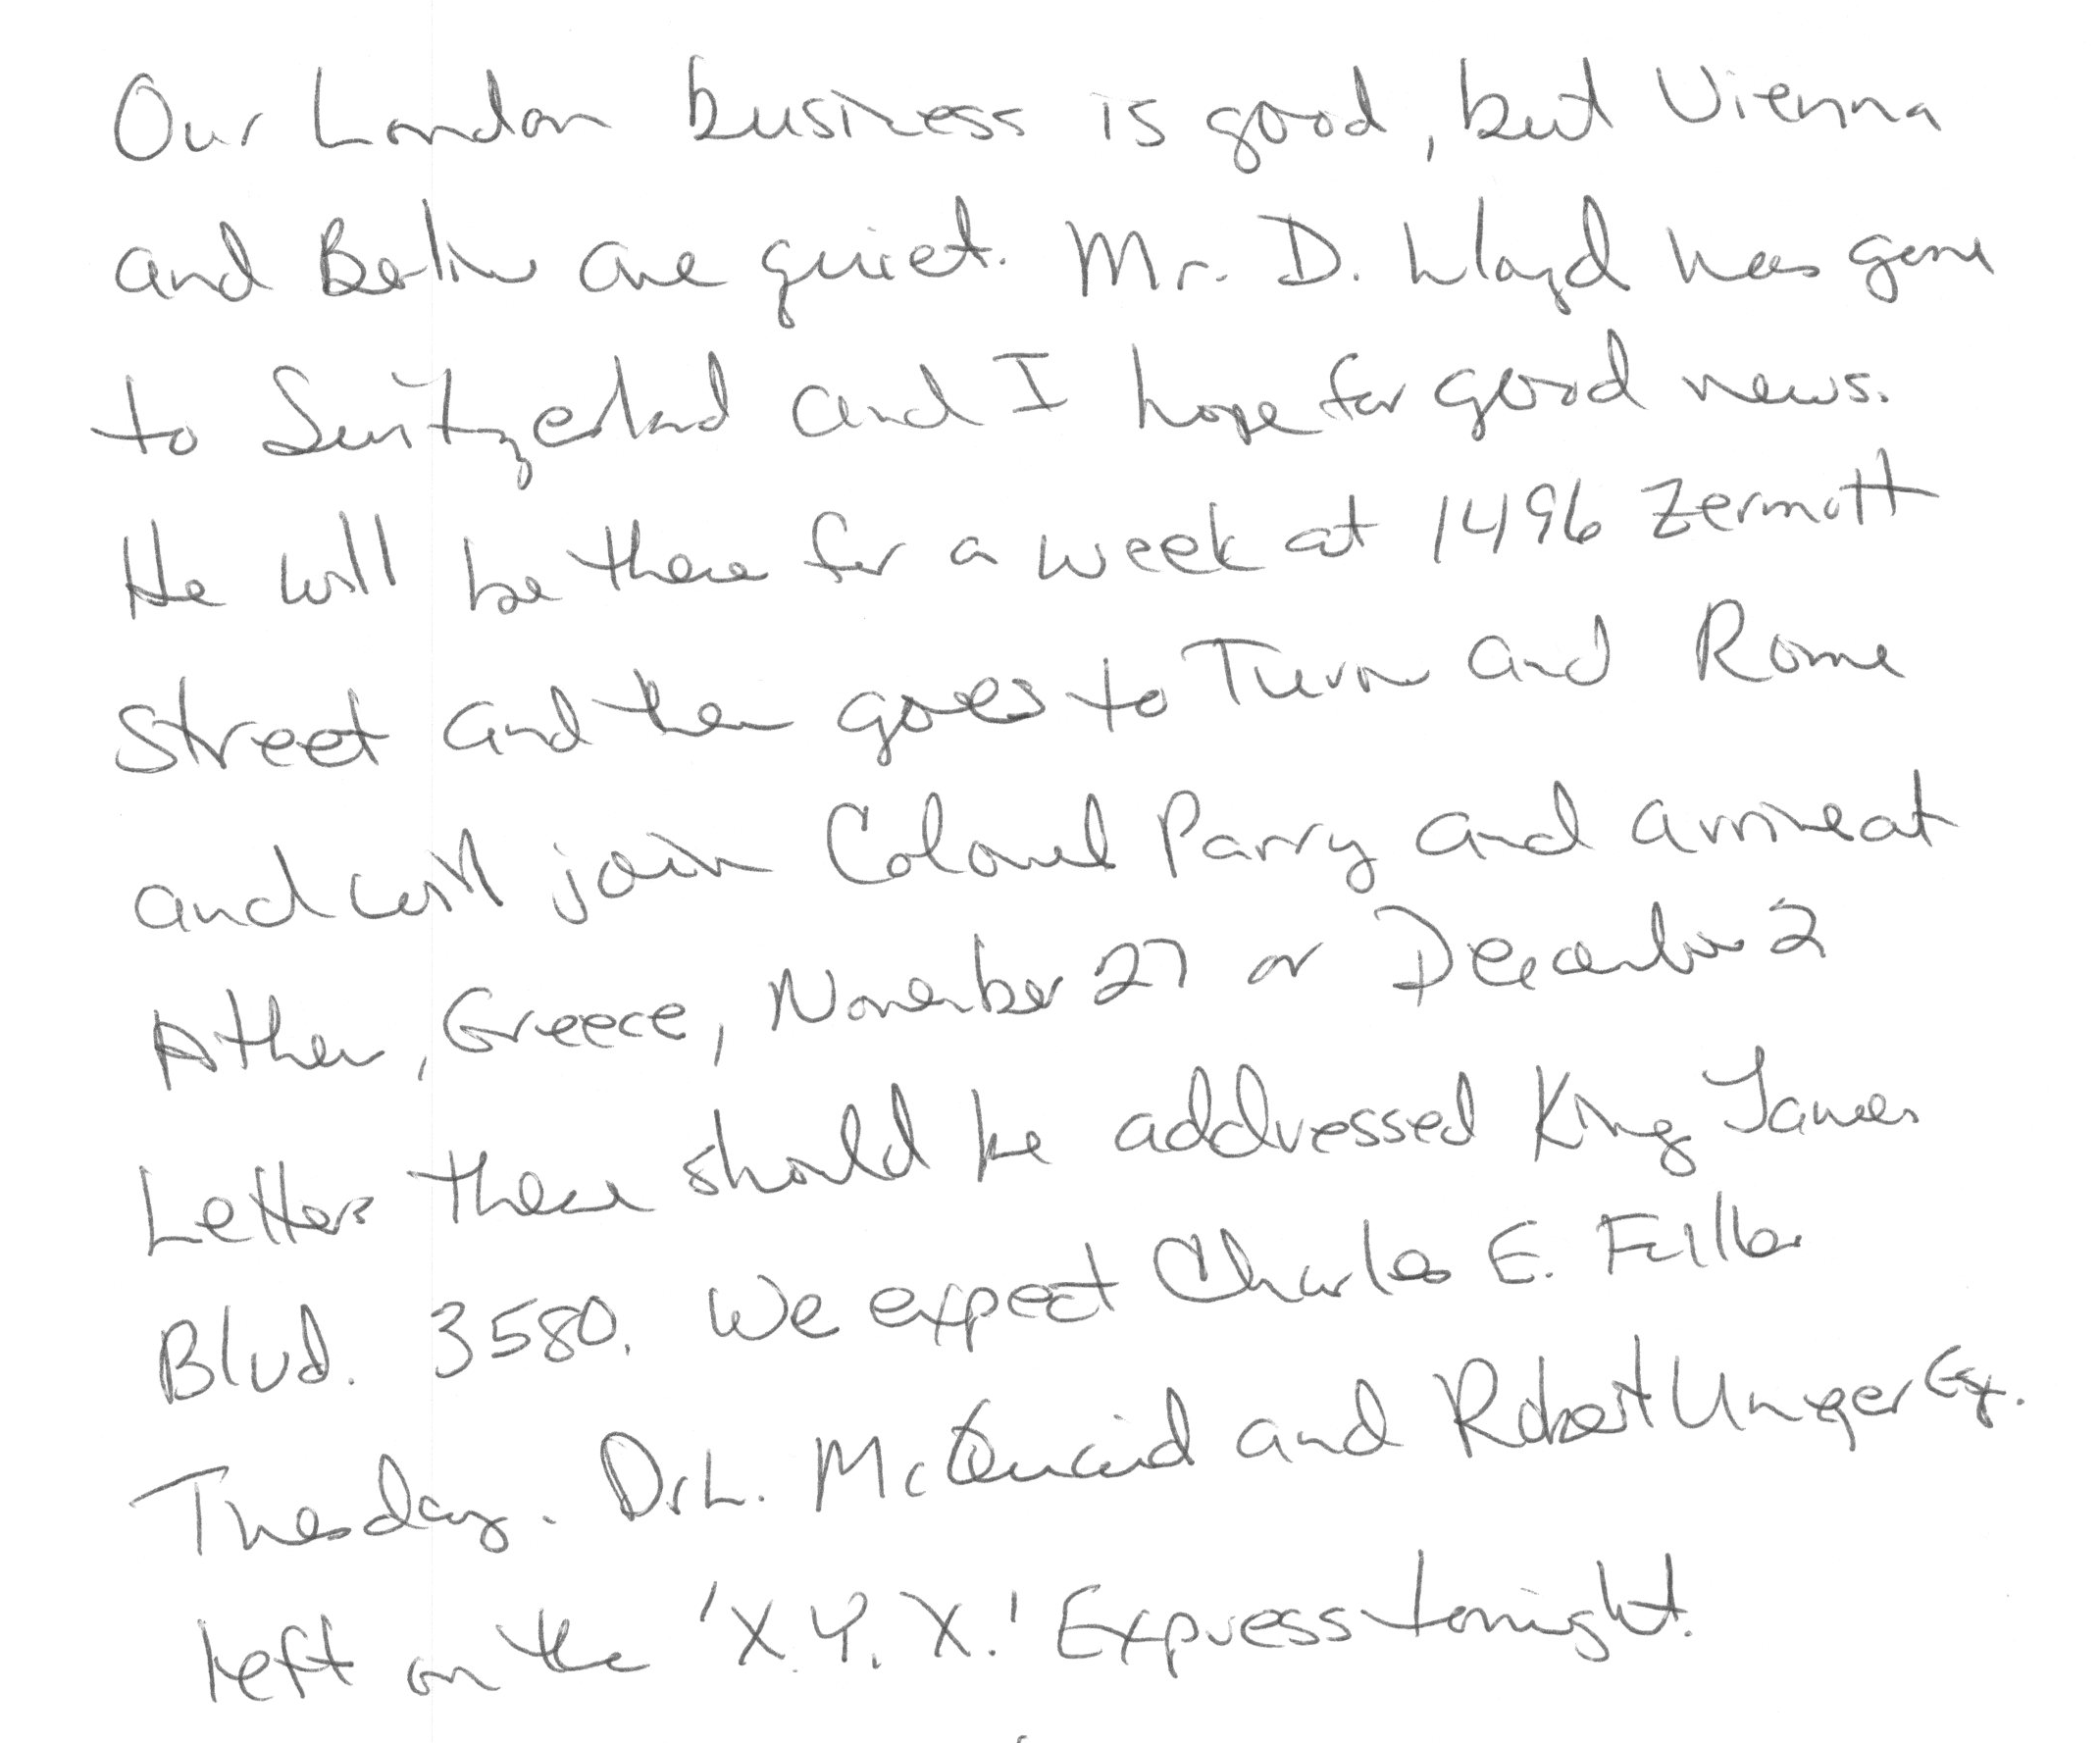 Our London business is good, but Vienna
and Berlin are quiet. Mr. D. Lloyd has gone
to Switzerland and I hope for good news.
He will be there for a week at 1496 Zermott
Street and then goes to Turin and Rome
and will join Colonel Parry and arrive at
Athen, Greece, November 27 or December 2
Letters there should be addressed King James
Blvd. 3580. We expect Charles E. Fuller
Tuesday. Dr L. McQuaid and Robert Unger Esq.
left on the 'X.Y.X.' Express tonight.